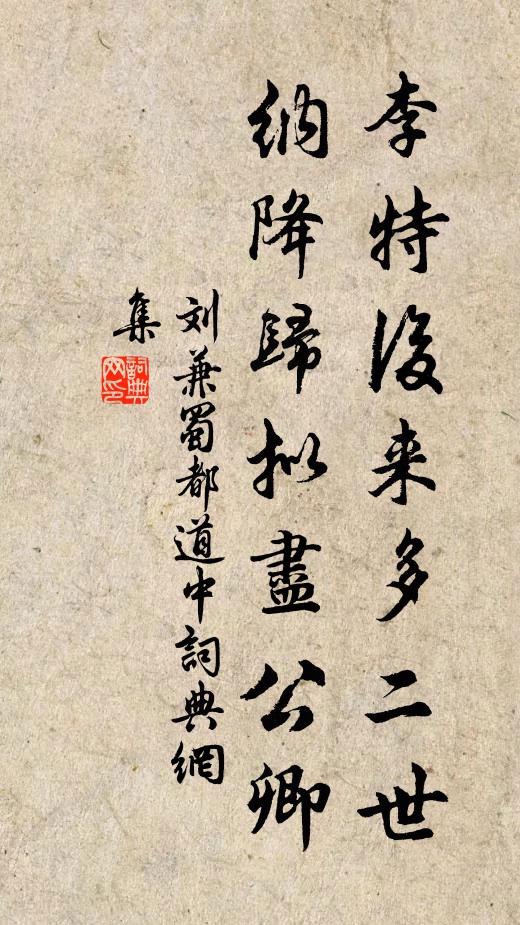 李特後来多二世
納降歸拟盡公卿
刘兼蜀都道中詞典網
集
詞典网印